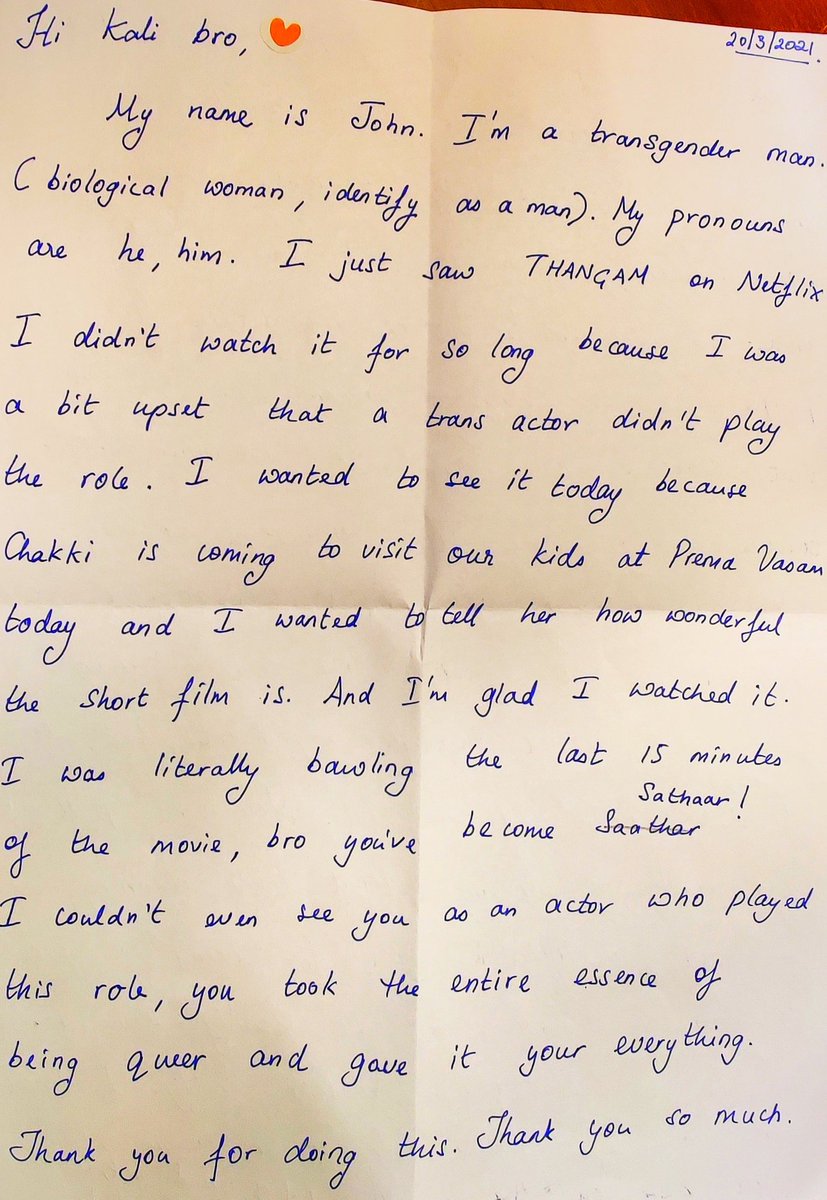 Hi Kali bro,
20/3/2021.
My name is John. I'm a transgender man.
(biological woman, identify as a man). My pronouns
are he, him. I just saw THANGAM on Netflix
I didn't watch it for so long because I was
a bit upset that a trans actor didn't play
the role. I wanted to see it today because
Chakki is coming to visit our kids at Prema Vasam
today and I wanted to tell her how wonderful
the short film is. And I'm glad I watched it.
I was literally bawling the last 15 minutes
Sathaar!
of the movie, bro you've become Saathar
I couldn't even see you as an actor who played
this role, you took the entire essence of
being queer and gave it your everything.
Thank you for doing this. Thank you so much.